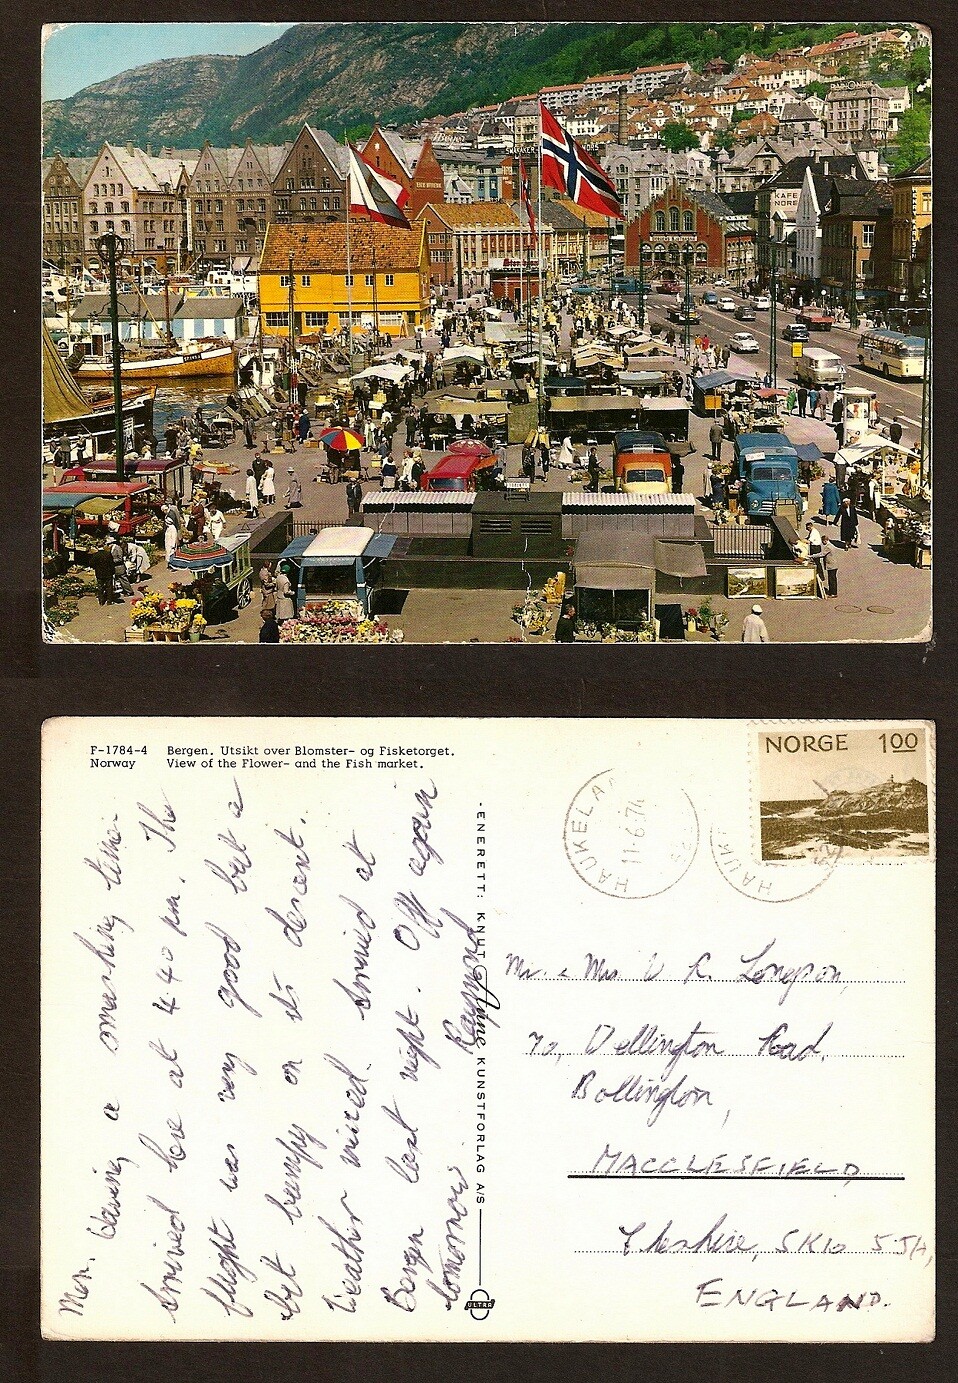 KAFE
NORE
F-1784-4 Bergen. Utsikt over Blomster- og Fisketorget.
Norway View of the Flower- and the Fish market.
NORGE 100
HAUKELA
11-6.74
HAUK
Mon. Having a smashing time.
Arrived here at 4 40 pm. The
flight was very good but a
bit bumpy on its descent.
Weather mixed. Arrived at
Bergen last night. Off again
tomorrow Raymond
·ENERETT: KNUT Aune KUNSTFORLAG A/S
ULTRA
Mr. & Mrs W R. Longson,
70, Wellington Road,
Bollington,
MACCLESFIELD,
Cheshire, SK10 5JH,
ENGLAND.